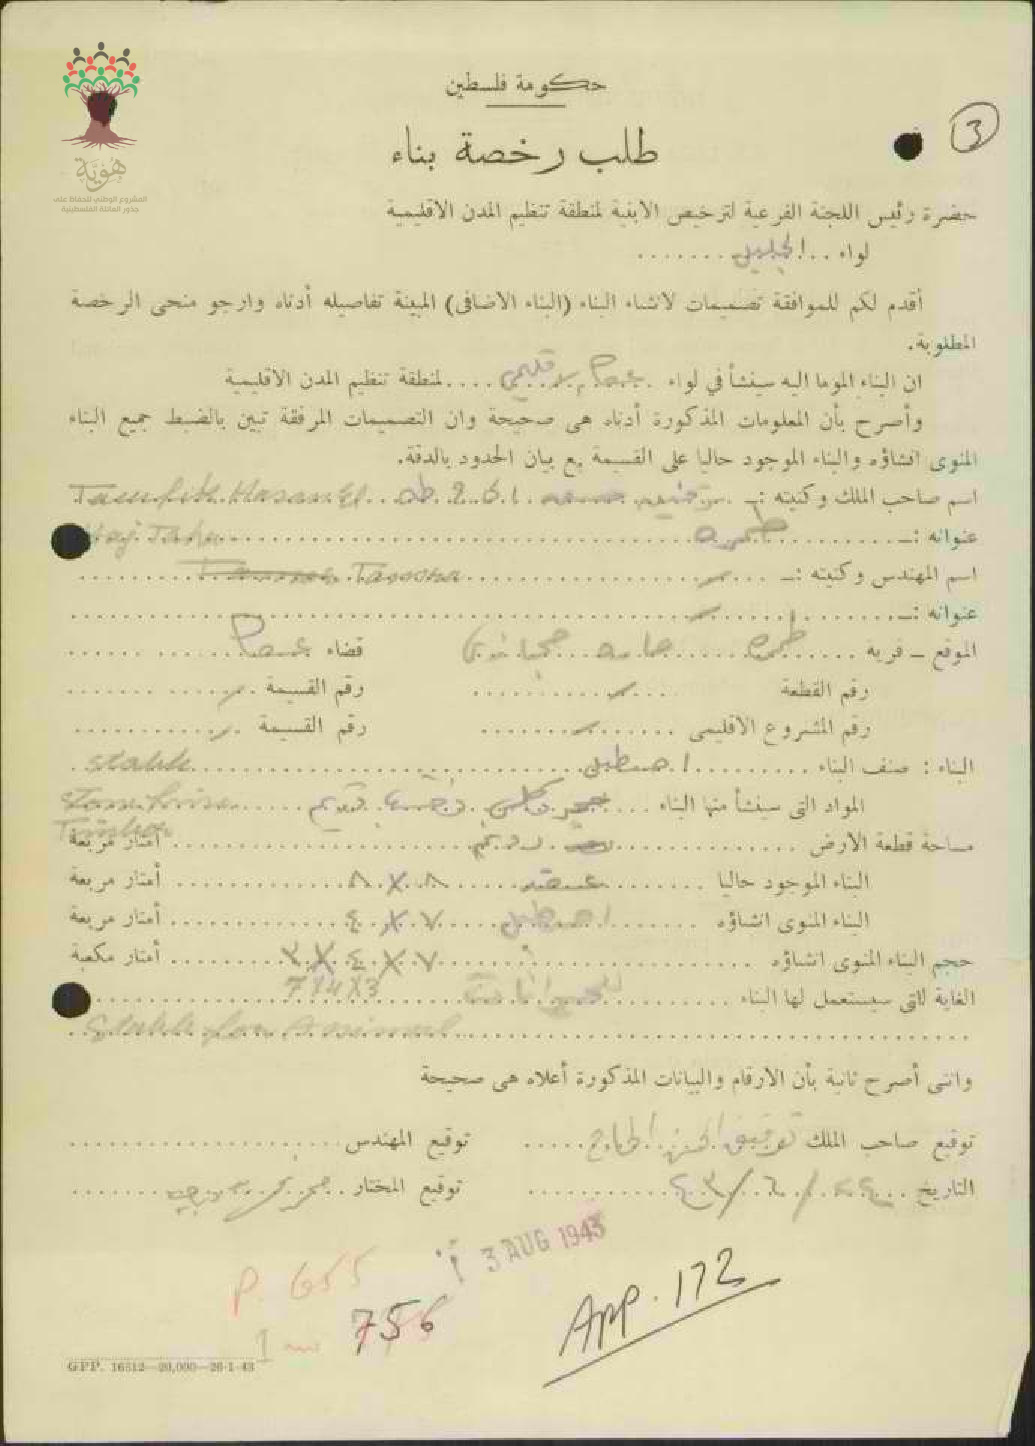 هُوِيَّة
المشروع الوطني للحفاظ على
جذور العائلة الفلسطينية
3
حكومة فلسطين
طلب رخصة بناء
حضرة رئيس اللجنة الفرعية لترخيص الابنية لمنطقة تنظيم المدن الاقليمية
لواء . . الجليل . . . . . . .
أقدم لكم للموافقة تصميمات لانشاء البناء (البناء الاضافى) المبينة تفاصيله أدناه وارجو منحى الرخصة
المطلوبة.
ان البناء الموما اليه سينشأ في لواء . عكا الاقليمي . . . . لمنطقة تنظيم المدن الاقليمية
وأصرح بأن المعلومات المذكورة أدناه هى صحيحة وان التصميمات المرفقة تبين بالضبط جميع البناء
المنوى انشاؤه والبناء الموجود حاليا على القسيمة مع بيان الحدود بالدقة.
اسم صاحب الملك وكنيته :ــ توفيق حسن طه Tawfik Hasan El
عنوانه :ــ طمره Haj Taha
اسم المهندس وكنيته :ــ Tamra
عنوانه :ــ
الموقع ــ قرية طمره حارة قضاء عكا
رقم القطعة رقم القسيمة
رقم المشروع الاقليمى رقم القسيمة
البناء : صنف البناء اصطبل Stable
المواد التى سينشأ منها البناء حجر وكلس وخشب قديم Stone Lime
Timber
مساحة قطعة الارض أمتار مربعة
البناء الموجود حاليا عقد ٨ X ٨ أمتار مربعة
البناء المنوى انشاؤه اصطبل ٧ X ٤ أمتار مربعة
حجم البناء المنوى انشاؤه ٧ X ٤ X ٣ أمتار مكعبة
7X4X3
الغاية التى سيستعمل لها البناء للحيوانات
Stable for Animal
واننى أصرح ثانية بأن الارقام والبيانات المذكورة أعلاه هى صحيحة
توقيع صاحب الملك توفيق الحسن الحاج توقيع المهندس
التاريخ ٢٤/٦/٤٣ توقيع المختار
3 AUG 1943
P. 655
756
App. 172
GPP. 16512—20,000—26-1-43